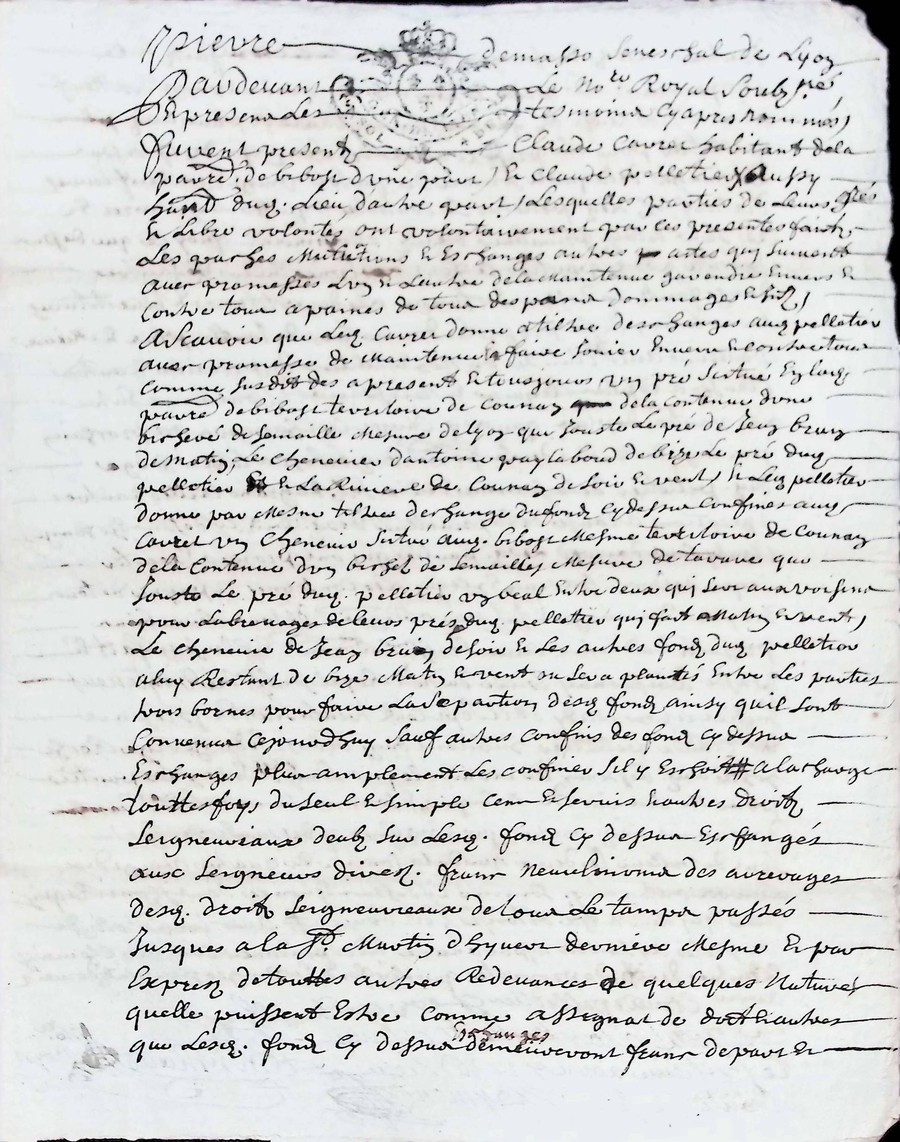 pierre demasso Seneschal de Lyon
Pardevant Le No.re Royal Soubs.né
En presence des tesmoins Cy apres nommés
furent presents Claude Cavret habitant de la
parre. de bibost d'une part, Et Claude pelletier aussy
habt dud. Lieu d'autre part, Lesquelles parties de Leurs grés
Et Libre volontés ont volontairement par ces presentes faict
Les purches Mutations Et Eschanges autres qui suivent
avec promesses L'un Et L'autre de la Maintenue garendie Envers Et
Contre tous a paines de tous despans dommages Et
A Scavoir que Led. Cavret donne a tiltre d'eschanges aud pelletier
avec promesse de Maintenir faire Jouier Envers Et contre tous
comme Susdit des a present Et tousjours un pré Scitué En lad.
parre. de bibost territoire de Counay de la contenue d'une
bicherée de Semaille Mesure de Lyon qui Jouste Le pré de Jean brun
de Matin, Le Chenevier d'antoine de bize Le pré dud.
pelletier Et La Riviere de Counay de Soir Et vent, Et Led pelletier
donne par Mesme tiltre d'eschange du fond Cy dessus Confines aud.
Cavret un Chenevier Scitué aud. bibost Mesme territoire de Counay
de la Contenue d'un bichet de Semailles Mesure de tarare que
Jouste Le pré dud. pelletier un beal Entre deux qui Sert aux voisins
pour Labreuages de leurs prés dud. pelletier qui fait Matin Et vent,
Le chenevier de Jean brun de Soir Et Les autres fond dud pelletier
a luy Restant de bizes Matin Et vent ou Sera plantés Entre Les parties
trois bornes pour faire La Separtion desd. fond ainsy quil Sont
Convenus cejourdhuy Sauf autres confins des fond Cy dessus
Eschanges plus amplement Les confiner S'il y Eschoit # a la charge
touttesfoys du Seul Et Simple Cens Et Servis Et autres droits
Seigneuriaux deubs Sur Lesd. fond Cy dessus Eschangés
aux Seigneurs divers. franc Neaulmoins des arrerages
desd. droits Seigneureaux de tous Le temps passés
Jusques a la St. Martin d'hyver derniere Mesme Et par
Expres de touttes autres Redevances de quelques Natures
quelle puissent Estre comme assignat de dott Et autres
que Lesd. fond Cy dessus Eschanges demeureront franc de part Et